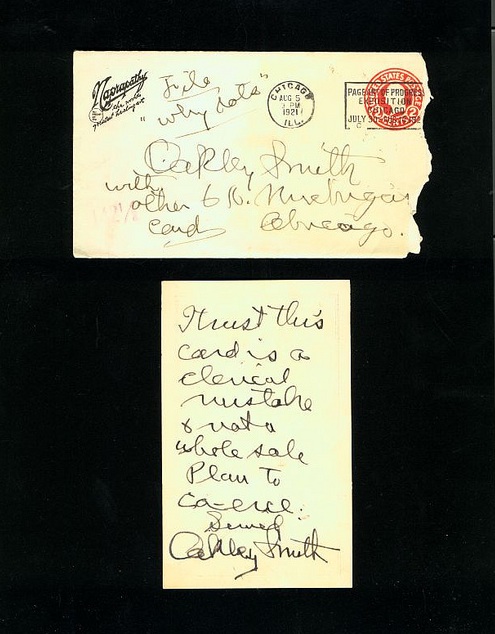 Naprapathy
File
"why data"
CHICAGO
AUG 5
PM
1921
ILL.
PAGEANT OF PROGRESS
EXPOSITION
CHICAGO
JULY 30
UNITED STATES
Oakley Smith
with
other 616. Michigan
card Chicago.
I trust this
card is a
clerical
mistake
& not a
whole sale
Plan to
co-erce.
Oakley Smith